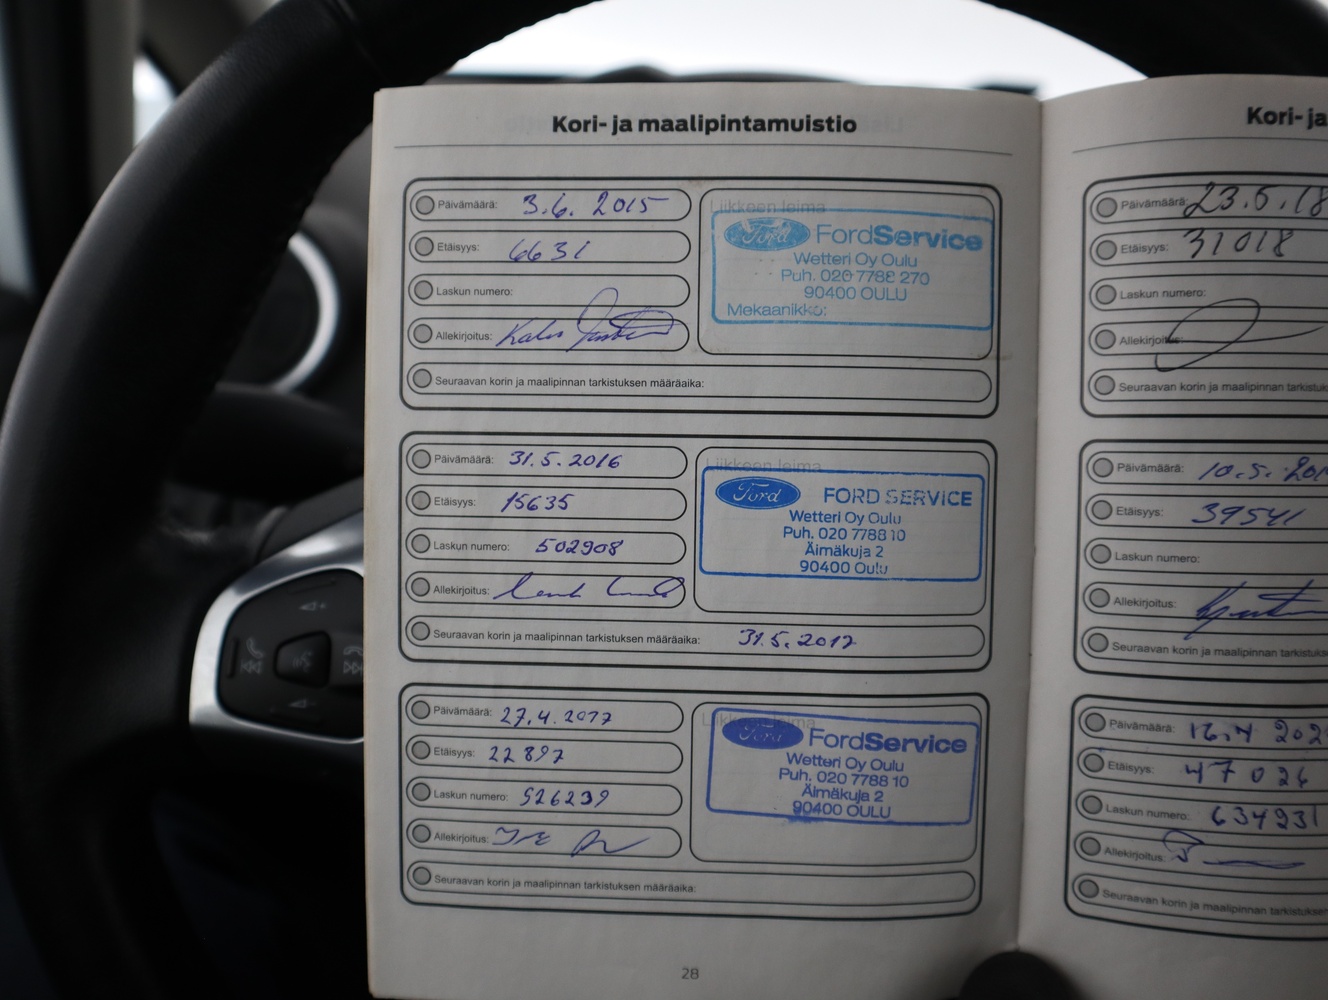 Kori- ja maalipintamuistio
Päivämäärä: 3.6. 2015
Etäisyys: 6631
Laskun numero:
Allekirjoitus:
Seuraavan korin ja maalipinnan tarkistuksen määräaika:
Liikkeen leima
Ford FordService
Wetteri Oy Oulu
Puh. 020 7788 270
90400 OULU
Mekaanikko:
Päivämäärä: 31.5.2016
Etäisyys: 15635
Laskun numero: 502908
Allekirjoitus:
Seuraavan korin ja maalipinnan tarkistuksen määräaika: 31.5.2017
Liikkeen leima
Ford FORD SERVICE
Wetteri Oy Oulu
Puh. 020 7788 10
Äimäkuja 2
90400 Oulu
Päivämäärä: 27.4.2017
Etäisyys: 22897
Laskun numero: 526239
Allekirjoitus:
Seuraavan korin ja maalipinnan tarkistuksen määräaika:
Liikkeen leima
Ford FordService
Wetteri Oy Oulu
Puh. 020 7788 10
Äimäkuja 2
90400 OULU
28
Kori- ja
Päivämäärä: 23.5.18
Etäisyys: 31018
Laskun numero:
Allekirjoitus:
Seuraavan korin ja maalipinnan
Päivämäärä: 10.5.201
Etäisyys: 39541
Laskun numero:
Allekirjoitus:
Seuraavan korin ja maalipinnan
Päivämäärä: 16.4 202
Etäisyys: 47026
Laskun numero: 634931
Allekirjoitus:
Seuraavan korin ja maalipinnan